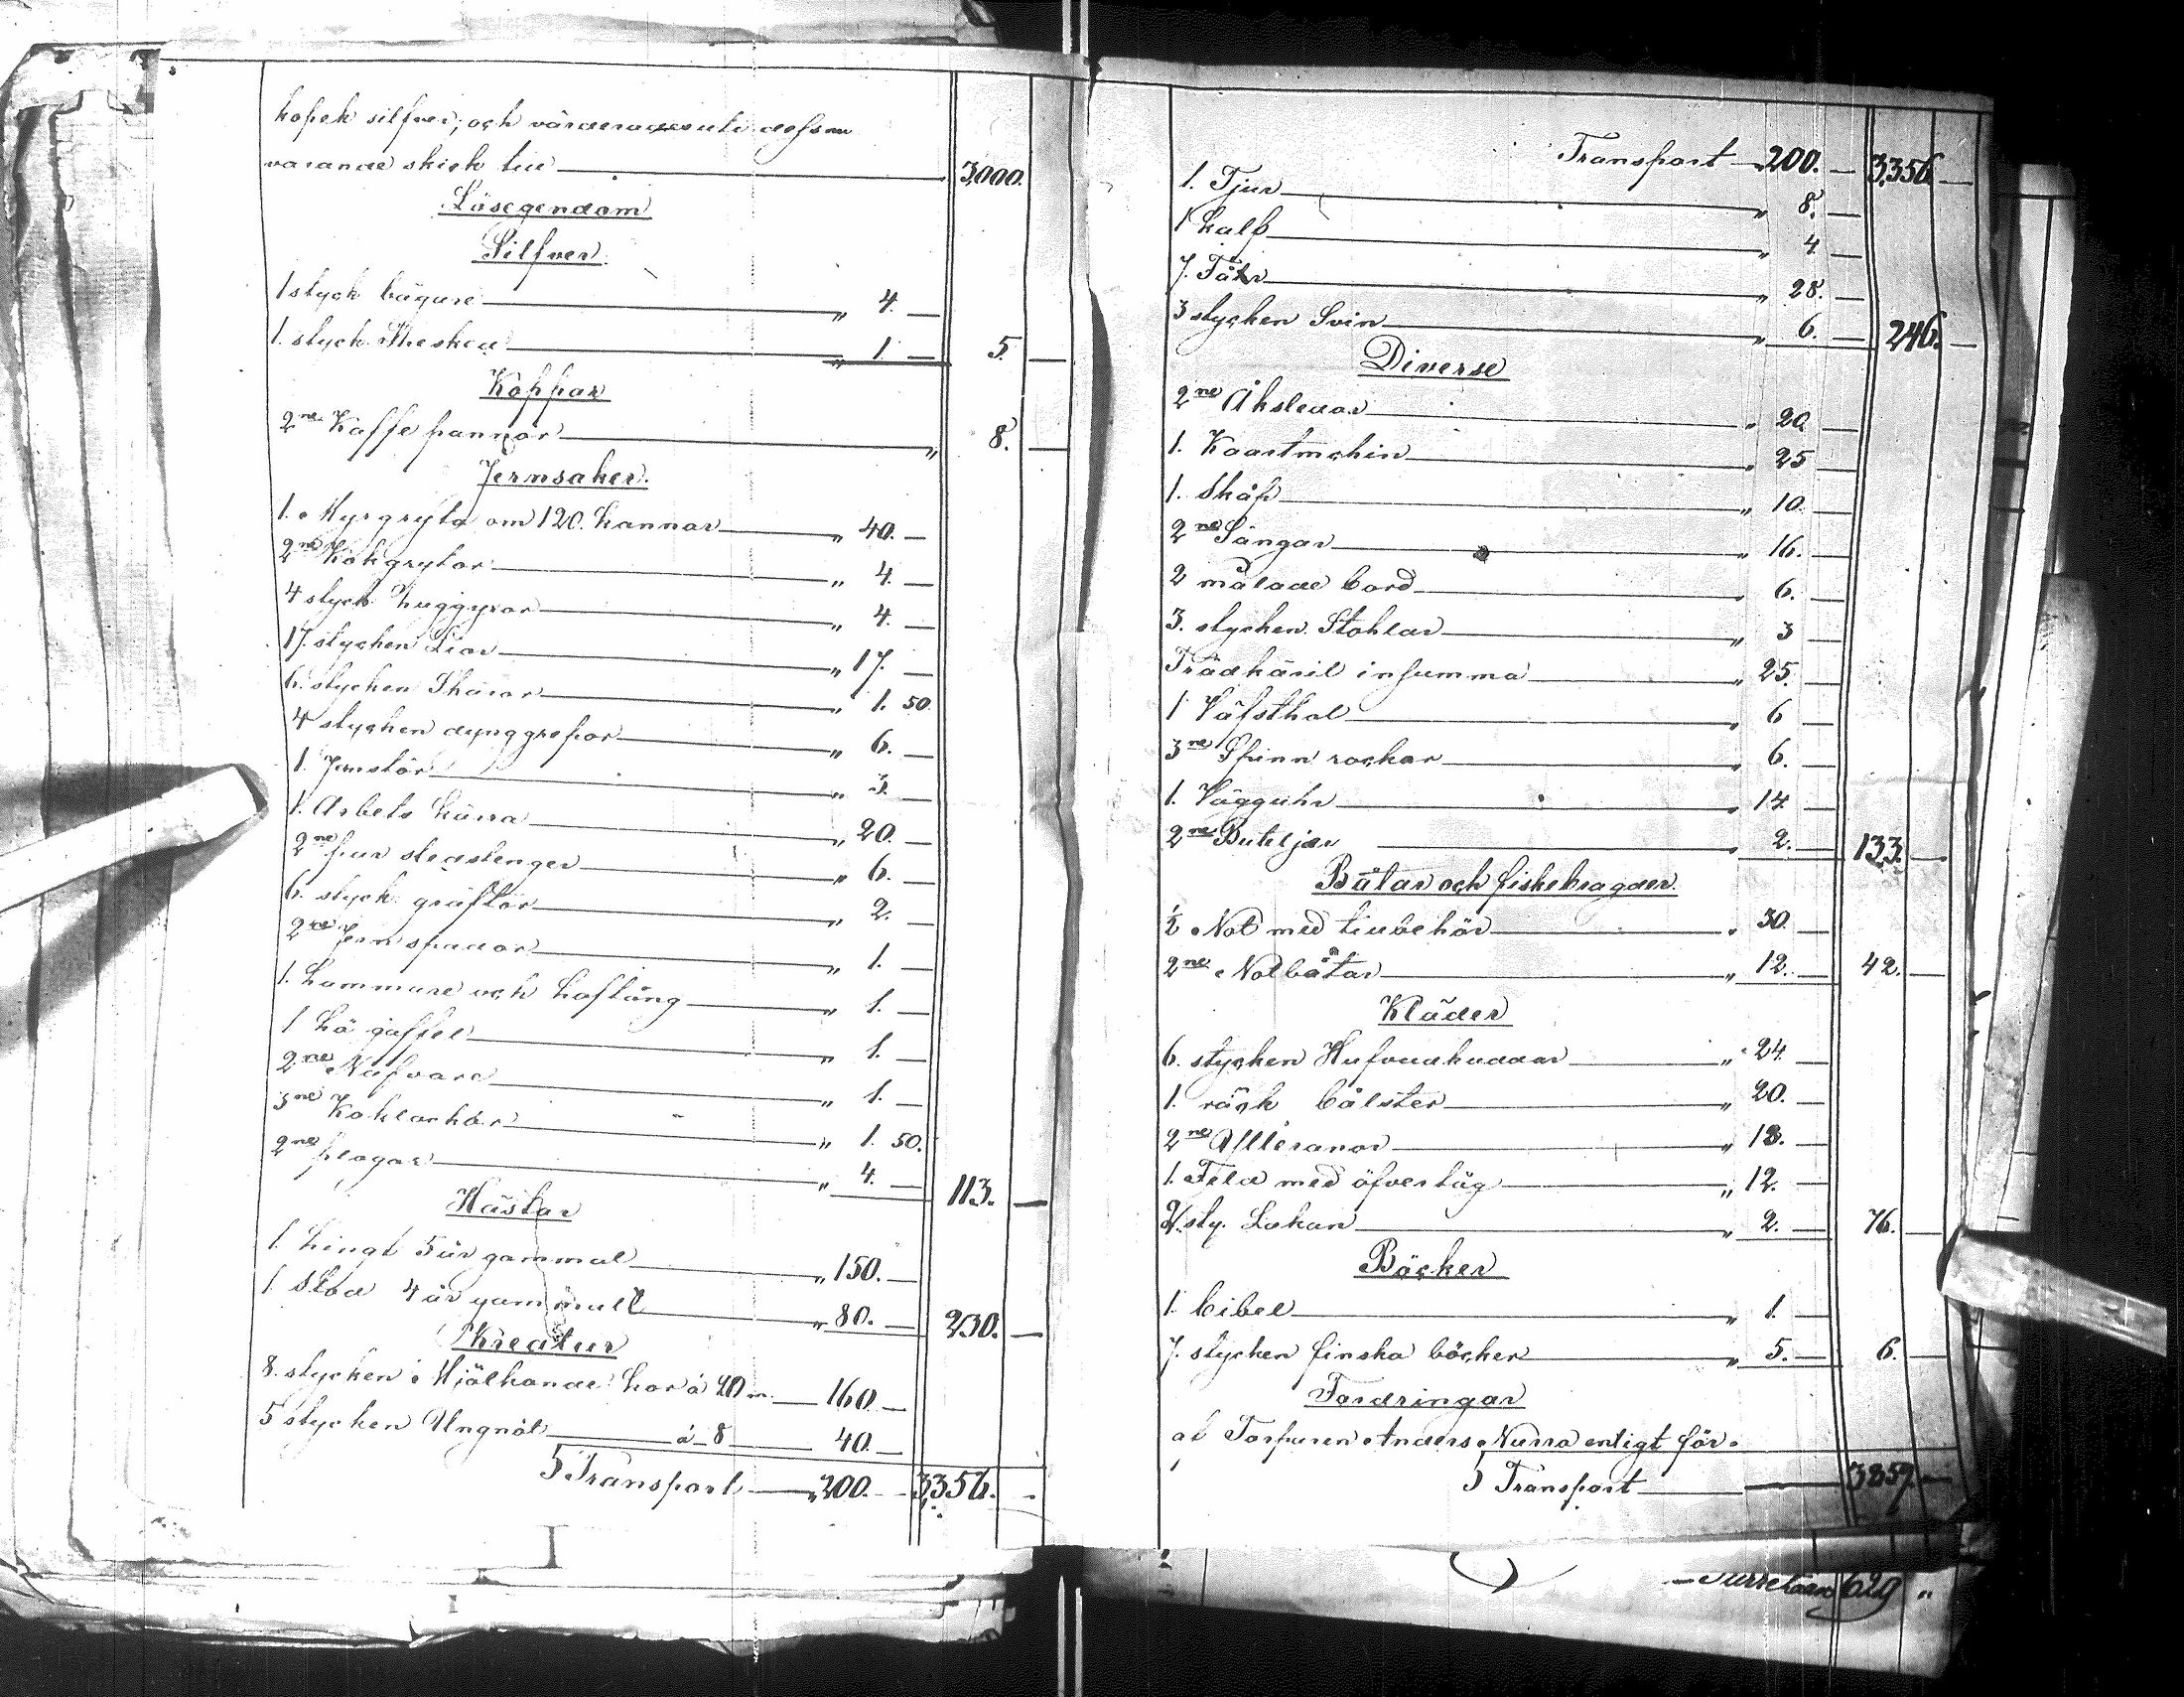 kopek silfver, och värderades uti dess nu
varande skick till 3,000.
Lösegendom
Silfver
1 styck bägare " 4. —
1. styck Thesked " 1. — 5. —
Koppar
2ne Kaffe pannor " 8. —
Jernsaker.
1. Myrgryta om 120. kannor " 40. —
2ne Kokgrytor " 4. —
4 styck huggyxor " 4. —
17. stycken Liar " 17. —
6. stycken Skäror " 1. 50.
4 stycken dynggrepar " 6. —
1. Jernstör " 3. —
1. Arbets kärra " 20. —
2ne par stedstenger " 6. —
6. styck gräftor " 2. —
2ne Jernspadar " 1. —
1. hammare och hoftång " 1. —
1 hö gaffel " 1. —
2ne Nafvare " 1. —
3ne Koklockor " 1. 50.
2ne plogar " 4. — 113. —
Hästar
1. hingt 5 år gammal " 150. —
1. Sto 4 år gammalt " 80. — 230. —
Kreatur
8. stycken Mjölkande kor á 20 m. 160. —
5 stycken Ungnöt á 8 40. —
Transport " 200. — 3,356. —
Transport 200. — 3,356 —
1. Tjur " 8. —
1 kalf " 4 —
7. Får " 28. —
3 stycken Svin " 6. — 246. —
Diverse
2ne Åksledar " 20 —
1. Kaartmchin " 25 —
1. Skåp " 10. —
2ne Sängar " 16. —
2 målade bord " 6. —
3. stycken Stohlar " 3 —
Trädkäril insumma " 25. —
1 Väfsthol " 6 —
3ne Spinn rockar " 6. —
1. Vägguhr " 14 —
2ne Buteljer " 2. — 133. —
Båtar och fiskebragder.
½ Not med tillbehör " 30. —
2ne Notbåtar " 12. — 42. —
Kläder
6. stycken Hufvudkuddar " 24 —
1. räck bålster " 20. —
2ne Ylleranor " 18. —
1. Fäld med öfvertåg " 12. —
2. sty. Lakan " 2. — 76. —
Böcker
1. bibel " 1. —
7. stycken finska böcker " 5. — 6. —
Fordringar
af Torparen Anders Nurra enligt för-
Transport 3859. —
629 "